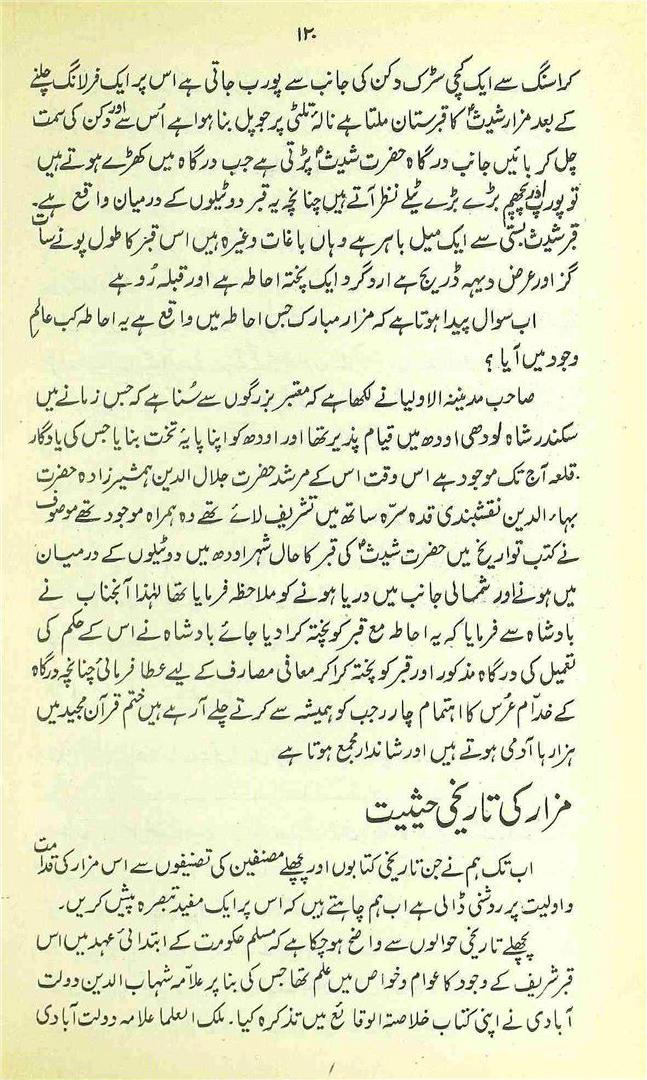 ۱۲۰
کراسنگ سے ایک کچی سڑک دکن کی جانب سے پورب جاتی ہے اس پر ایک فرلانگ چلنے
کے بعد مزار شیثؑ کا قبرستان ملتا ہے نالۂ تلٹی پر جو پل بنا ہوا ہے اُس سے اور دکن کی سمت
چل کر بائیں جانب درگاہ حضرت شیثؑ پڑتی ہے جب درگاہ میں کھڑے ہوتے ہیں
تو پورب اور پچھم بڑے بڑے ٹیلے نظر آتے ہیں چنانچہ یہ قبر دو ٹیلوں کے درمیان واقع ہے۔
قبر شیث بستی سے ایک میل باہر ہے وہاں باغات وغیرہ ہیں اس قبر کا طول پونے سات
گز اور عرض دیہہ ڈریج ہے ارد گرد ایک پختہ احاطہ ہے اور قبلہ رُو ہے
اب سوال پیدا ہوتا ہے کہ مزار مبارک جس احاطہ میں واقع ہے یہ احاطہ کب عالمِ
وجود میں آیا ؟
صاحب مدینۃ الاولیا نے لکھا ہے کہ معتبر بزرگوں سے سُنا ہے کہ جس زمانے میں
سکندر شاہ لودھی اودھ میں قیام پذیر تھا اور اودھ کو اپنا پایۂ تخت بنایا جس کی یادگار
قلعہ آج تک موجود ہے اس وقت اس کے مرشد حضرت جلال الدین ہمشیر زادہ حضرت
بہاء الدین نقشبندی قدہ سرّہ ساتھ میں تشریف لائے تھے دہ ہمراہ موجود تھے موصوف
نے کتب تواریخ میں حضرت شیثؑ کی قبر کا حال شہر اودھ میں دو ٹیلوں کے درمیان
میں ہونے اور شمالی جانب میں دریا ہونے کو ملاحظہ فرمایا تھا لہٰذا آنجناب نے
بادشاہ سے فرمایا کہ یہ احاطہ مع قبر کو پختہ کرا دیا جائے بادشاہ نے اس کے حکم کی
تعمیل کی درگاہ مذکور اور قبر کو پختہ کرا کر معافی مصارف کے لیے عطا فرمائی چنانچہ درگاہ
کے خدام عُرس کا اہتمام چار رجب کو ہمیشہ سے کرتے چلے آ رہے ہیں ختم قرآن مجید میں
ہزار ہا آدمی ہوتے ہیں اور شاندار مجمع ہوتا ہے
مزار کی تاریخی حیثیت
اب تک ہم نے جن تاریخی کتابوں اور پچھلے مصنفین کی تصنیفوں سے اس مزار کی قدامت
و اولیت پر روشنی ڈالی ہے اب ہم چاہتے ہیں کہ اس پر ایک مفید تبصرہ پیش کریں۔
پچھلے تاریخی حوالوں سے واضح ہو چکا ہے کہ مسلم حکومت کے ابتدائی عہد میں اس
قبر شریف کے وجود کا عوام و خواص میں علم تھا جس کی بنا پر علامہ شہاب الدین دولت
آبادی نے اپنی کتاب خلاصۃ الوقائع میں تذکرہ کیا۔ ملک العلما علامہ دولت آبادی